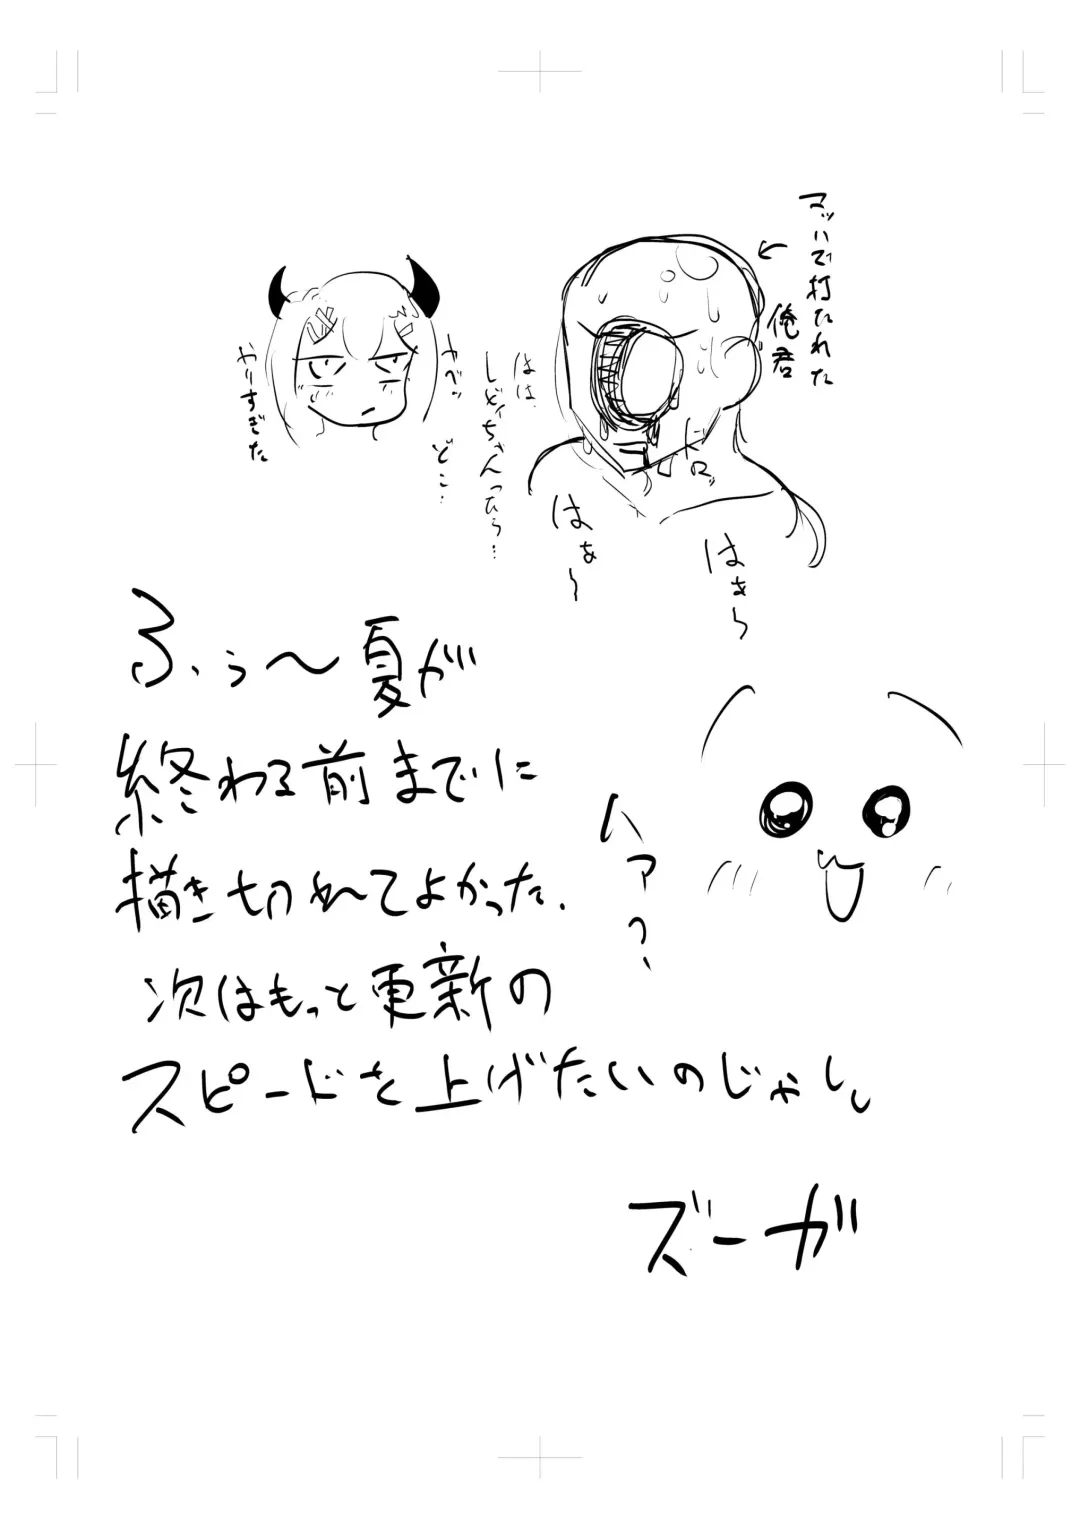 マッハで打たれた
俺君
はは、
しどいちゃんったら…
ヤベッ
どこ…
やりすぎた
ドロッ
はぁ〜
はぁ〜
ふぅ〜夏が
終わる前までに
描き切れてよかった、
次はもっと更新の
スピードを上げたいのじゃし。
ハァっ、
ズーが